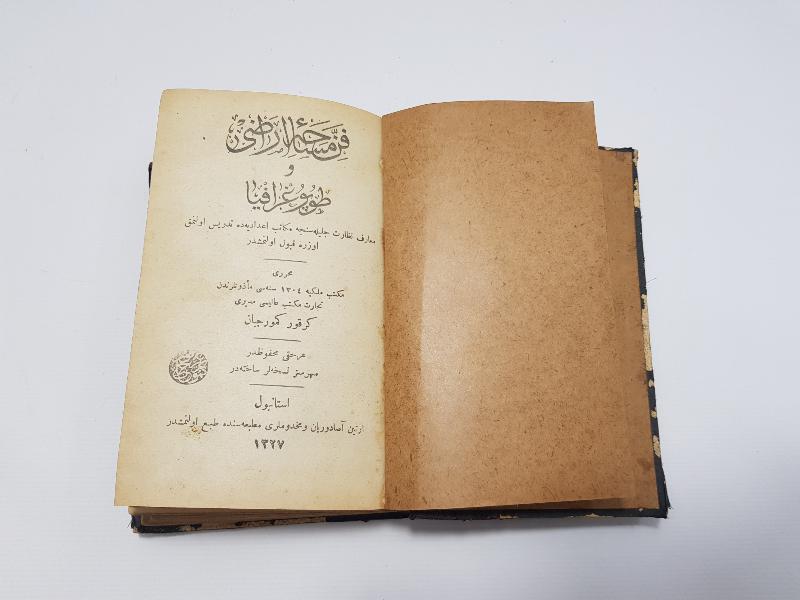 فن مساحۀ اراضی
و
طوپوغرافيا
معارف نظارت جليله‌سنجه مكاتب اعداديه‌ده تدريس اولنمق
اوزره قبول اولنمشدر
محرری
مكتب ملكيه ١٣٠٤ سنه‌سی مأذونلرندن
تجارت مكتب عاليسی مديری
كرقور كمورجيان
هر حقی محفوظدر
مهرسز نسخه‌لر ساخته‌در
استانبول
آرتين آصادوريان ومخدوملری مطبعه‌سنده طبع اولنمشدر
١٣٢٧